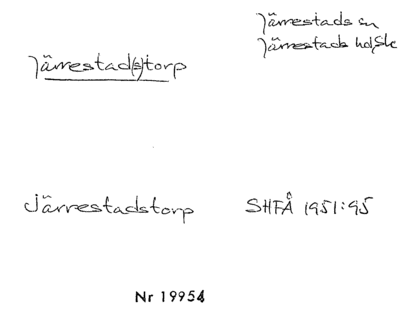 Järrestads sn
Järrestads hd, Sk
Järrestad(s)torp
Järrestadstorp SHFÅ 1951:95
Nr 19954